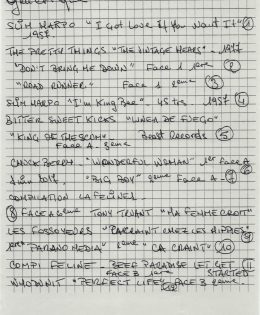 Générique
SLIM HARPO "I Got Love If You Want It" ①
1957.
THE PRETTY THINGS "THE VINTAGE YEARS" - 1977
"DON'T BRING ME DOWN" Face 1 1ere ②
"ROAD RUNNER" Face 1 2eme ③
SLIM HARPO "I'm King Bee" 45 trs. 1957 ④
BITTER SWEET KICKS "LINEA DE FUEGO"
"KING OF THE SCUM" Beast Records ⑤
Face A. 3eme
CHUCK BERRY. "WONDERFUL WOMAN" 1er Face A ⑥
"BIG BOY" 2eme Face A - ⑦
COMPILATION LA FELINE 1
⑧ FACE A 6eme TONY TRUANT "MA FEMME CROIT"
LES FOSSOYEURS "PARCRAINT CHEZ LES HIPPIES" ⑨
1ere "PARANO MEDIA" 2eme "CA CRAINT" ⑩
COMPI FELINE BEEF PARADISE LET GET ⑪
FACE B 1ere STARTED
WHODUNIT "PERFECT LIFE" FACE B 2eme.
⑫